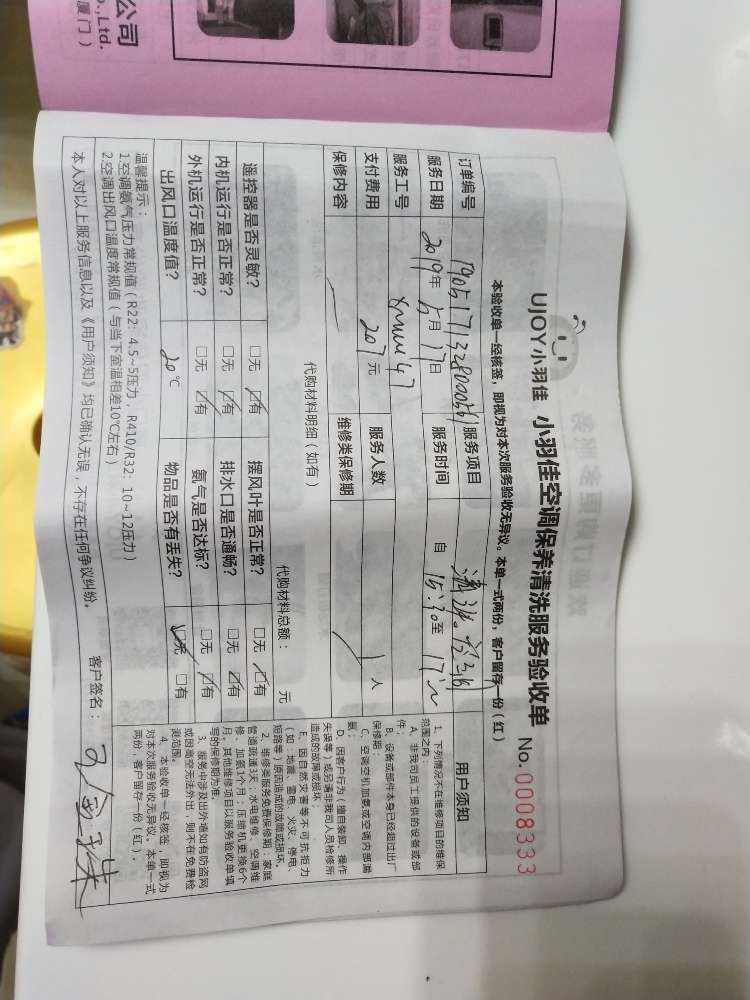 公司
o.,Ltd.
厦门）
UJOY小羽佳 小羽佳空调保养清洗服务验收单
No.0008333
本验收单一经核签，即视为对本次服务验收无异议。本单一式两份，客户留存一份（红）
订单编号 服务项目
服务日期 2019年5月17日 服务时间 自15:30至17:
服务工号
支付费用 207元 服务人数 1人
保修内容 维修类保修期
代购材料明细（如有） 代购材料总额： 元
遥控器是否灵敏？ □无 ☑有 摆风叶是否正常？ □无 ☑有
内机运行是否正常？ □无 ☑有 排水口是否通畅？ □无 ☑有
外机运行是否正常？ □无 ☑有 氨气是否达标？ □无 ☑有
出风口温度值？ 20℃ 物品是否有丢失？ ☑无 □有
温馨提示：
1.空调氨气压力常规值（R22：4.5~5压力，R410/R32：10~12压力）
2.空调出风口温度常规值（与当下室温相差10℃左右）
本人对以上服务信息以及《用户须知》均已确认无误，不存在任何争议纠纷。 客户签名：
用户须知
1、下列情况不在维修项目的维保
范围之内：
A、非我司员工提供的设备或部
件；
B、设备或部件本身已经超过出厂
保修期；
C、空调空机加氨或空调内部漏
氨；
D、因客户行为（擅自装卸、操作
失误等）或另请非我司人员检修所
造成的故障或损坏；
E、因自然灾害等不可抗拒力
（如：地震、雷电、火灾、停电、
短路等）原因造成的故障或损坏。
2、维修类服务免费保修期：家庭
管道疏通3天，水电维修、空调维
修、加氨1个月；压缩机更换6个
月。其他维修项目以服务验收单填
写的保修期为准。
3、服务中涉及出外墙如有防盗网
或因高空无法外出，则不在免费检
测范围。
4、本验收单一经核签，即视为
对本次服务验收无异议。本单一式
两份，客户留存一份（红）。